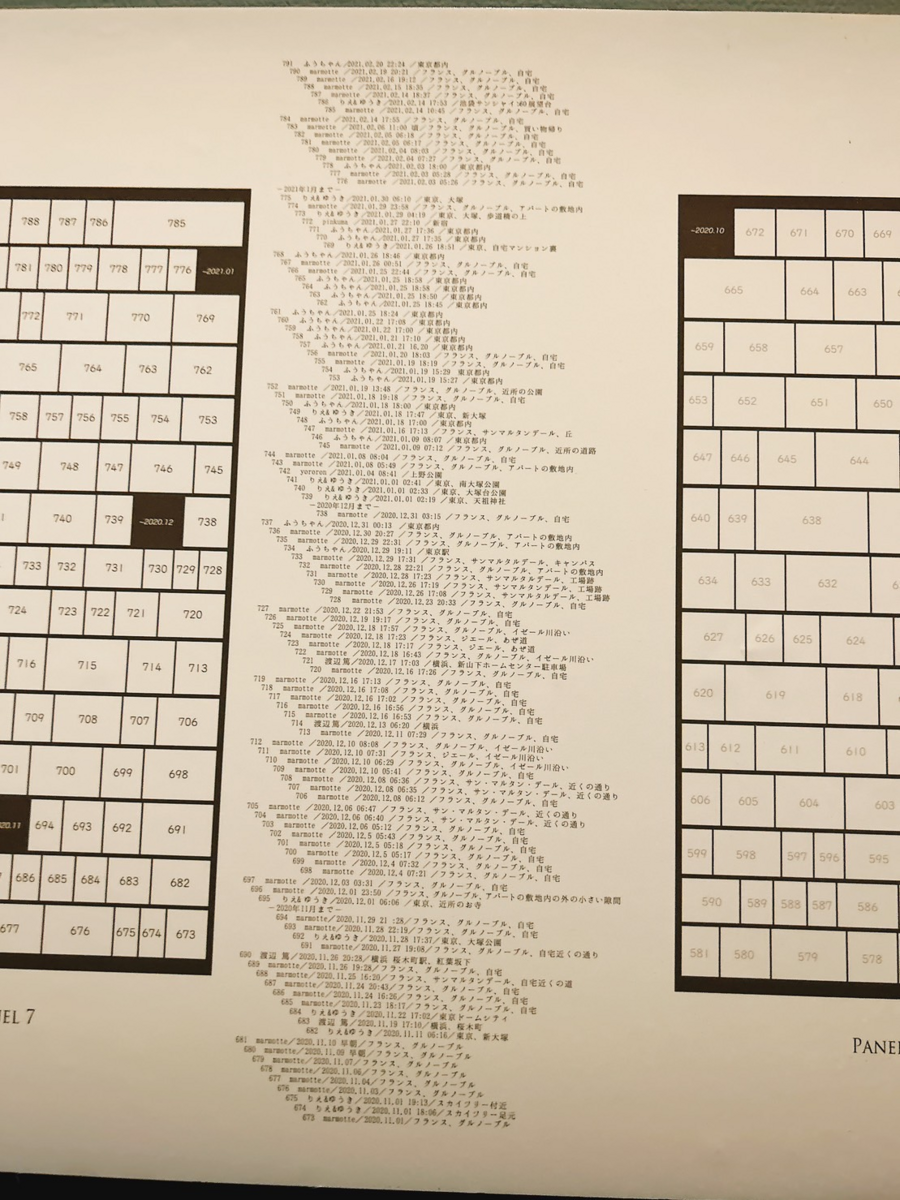 788 787 786 785
781 780 779 778 777 776 ~2021.01
772 771 770 769
765 764 763 762
758 757 756 755 754 753
749 748 747 746 745
740 739 ~2020.12 738
733 732 731 730 729 728
724 723 722 721 720
716 715 714 713
709 708 707 706
701 700 699 698
694 693 692 691
686 685 684 683 682
677 676 675 674 673
791 ふうちゃん/2021.02.20 22:24 /東京都内
790 marmotte /2021.02.19 20:21 /フランス、グルノーブル、自宅
789 marmotte /2021.02.16 19:12 /フランス、グルノーブル、自宅
788 marmotte /2021.02.15 18:35 /フランス、グルノーブル、自宅
787 marmotte /2021.02.14 18:37 /フランス、グルノーブル、自宅
786 りえ&ゆうき/2021.02.14 17:53 /池袋サンシャイン60展望台
785 marmotte /2021.02.14 10:45 /フランス、グルノーブル、自宅
784 marmotte /2021.02.14 17:55 /フランス、グルノーブル、自宅
783 marmotte /2021.02.06 11:00 頃/フランス、グルノーブル、買い物帰り
782 marmotte /2021.02.05 06:18 /フランス、グルノーブル、自宅
781 marmotte /2021.02.05 06:17 /フランス、グルノーブル、自宅
780 marmotte /2021.02.04 08:03 /フランス、グルノーブル、自宅
779 marmotte /2021.02.04 07:27 /フランス、グルノーブル、自宅
778 ふうちゃん/2021.02.03 18:00 /東京都内
777 marmotte /2021.02.03 05:28 /フランス、グルノーブル、自宅
776 marmotte /2021.02.03 05:26 /フランス、グルノーブル、自宅
−2021年1月まで−
775 りえ&ゆうき/2021.01.30 06:10 /東京、大塚
774 marmotte /2021.01.29 23:58 /フランス、グルノーブル、アパートの敷地内
773 りえ&ゆうき/2021.01.29 04:19 /東京、大塚、歩道橋の上
772 pinkuma /2021.01.27 22:10 /新宿
771 ふうちゃん/2021.01.27 17:36 /東京都内
770 ふうちゃん/2021.01.27 17:35 /東京都内
769 りえ&ゆうき/2021.01.26 18:51 /東京、自宅マンション裏
768 ふうちゃん/2021.01.26 18:46 /東京都内
767 marmotte /2021.01.26 00:51 /フランス、グルノーブル、自宅
766 marmotte /2021.01.25 22:44 /フランス、グルノーブル、自宅
765 ふうちゃん/2021.01.25 18:58 /東京都内
764 ふうちゃん/2021.01.25 18:58 /東京都内
763 ふうちゃん/2021.01.25 18:50 /東京都内
762 ふうちゃん/2021.01.25 18:45 /東京都内
761 ふうちゃん/2021.01.25 18:24 /東京都内
760 ふうちゃん/2021.01.22 17:08 /東京都内
759 ふうちゃん/2021.01.22 17:00 /東京都内
758 ふうちゃん/2021.01.21 17:10 /東京都内
757 ふうちゃん/2021.01.21 16.20 /東京都内
756 marmotte /2021.01.20 18:03 /フランス、グルノーブル、自宅
755 marmotte /2021.01.19 18:19 /フランス、グルノーブル、自宅
754 ふうちゃん/2021.01.19 15:29 東京都内
753 ふうちゃん/2021.01.19 15:27 /東京都内
752 marmotte /2021.01.19 13:48 /フランス、グルノーブル、近所の公園
751 marmotte /2021.01.18 19:18 /フランス、グルノーブル、自宅
750 ふうちゃん/2021.01.18 18:00 /東京都内
749 りえ&ゆうき/2021.01.18 17:47 /東京、新大塚
748 ふうちゃん/2021.01.18 17:00 /東京都内
747 marmotte /2021.01.16 17:13 /フランス、サンマルタンデール、丘
746 ふうちゃん/2021.01.09 08:07 /東京都内
745 marmotte /2021.01.09 07:12 /フランス、グルノーブル、近所の道路
744 marmotte /2021.01.08 08:04 /フランス、グルノーブル、自宅
743 marmotte /2021.01.08 05:49 /フランス、グルノーブル、アパートの敷地内
742 yororen /2021.01.04 08:41 /上野公園
741 りえ&ゆうき/2021.01.01 02:41 /東京、南大塚公園
740 りえ&ゆうき/2021.01.01 02:33 /東京、大塚台公園
739 りえ&ゆうき/2021.01.01 02:19 /東京、天祖神社
−2020年12月まで−
738 marmotte /2020.12.31 03:15 /フランス、グルノーブル、自宅
737 ふうちゃん/2020.12.31 00:13 /東京都内
736 marmotte /2020.12.30 20:27 /フランス、グルノーブル、アパートの敷地内
735 marmotte /2020.12.29 22:31 /フランス、グルノーブル、アパートの敷地内
734 ふうちゃん/2020.12.29 19:11 /東京駅
733 marmotte /2020.12.29 17:31 /フランス、サンマルタルデール、キャンパス
732 marmotte /2020.12.28 22:21 /フランス、グルノーブル、アパートの敷地内
731 marmotte /2020.12.28 17:23 /フランス、サンマルタルデール、工場跡
730 marmotte /2020.12.26 17:19 /フランス、サンマルタンデール、工場跡
729 marmotte /2020.12.26 17:08 /フランス、サンマルタルデール、工場跡
728 marmotte /2020.12.23 20:33 /フランス、グルノーブル、自宅
727 marmotte /2020.12.22 21:53 /フランス、グルノーブル、自宅
726 marmotte /2020.12.19 19:17 /フランス、グルノーブル、自宅
725 marmotte /2020.12.18 17:57 /フランス、グルノーブル、イゼール川沿い
724 marmotte /2020.12.18 17:23 /フランス、ジエール、あぜ道
723 marmotte /2020.12.18 17:17 /フランス、ジエール、あぜ道
722 marmotte /2020.12.18 16:43 /フランス、グルノーブル、イゼール川沿い
721 渡辺 篤/2020.12.17 17:03 /横浜、新山下ホームセンター駐車場
720 marmotte /2020.12.16 17:26 /フランス、グルノーブル、自宅
719 marmotte /2020.12.16 17:13 /フランス、グルノーブル、自宅
718 marmotte /2020.12.16 17:08 /フランス、グルノーブル、自宅
717 marmotte /2020.12.16 17:02 /フランス、グルノーブル、自宅
716 marmotte /2020.12.16 16:56 /フランス、グルノーブル、自宅
715 marmotte /2020.12.16 16:53 /フランス、グルノーブル、自宅
714 渡辺 篤/2020.12.13 06:20 /横浜
713 marmotte /2020.12.11 07:29 /フランス、グルノーブル、自宅
712 marmotte /2020.12.10 08:08 /フランス、グルノーブル、イゼール川沿い
711 marmotte /2020.12.10 07:31 /フランス、ジエール、イゼール川沿い
710 marmotte /2020.12.10 06:29 /フランス、グルノーブル、イゼール川沿い
709 marmotte /2020.12.10 05:41 /フランス、グルノーブル、自宅
708 marmotte /2020.12.08 06:36 /フランス、サン・マルタン・デール、近くの通り
707 marmotte /2020.12.08 06:35 /フランス、サン・マルタン・デール、近くの通り
706 marmotte /2020.12.08 06:12 /フランス、グルノーブル、自宅
705 marmotte /2020.12.06 06:47 /フランス、サン・マルタン・デール、近くの通り
704 marmotte /2020.12.06 06:40 /フランス、サン・マルタン・デール、近くの通り
703 marmotte /2020.12.06 05:12 /フランス、グルノーブル、自宅
702 marmotte /2020.12.5 05:43 /フランス、グルノーブル、自宅
701 marmotte /2020.12.5 05:18 /フランス、グルノーブル、自宅
700 marmotte /2020.12.5 05:17 /フランス、グルノーブル、自宅
699 marmotte /2020.12.4 07:32 /フランス、グルノーブル、自宅
698 marmotte /2020.12.4 07:21 /フランス、グルノーブル、自宅
697 marmotte /2020.12.03 03:31 /フランス、グルノーブル、自宅
696 marmotte /2020.12.01 23:50 /フランス、グルノーブル、アパートの敷地内の外の小さい隙間
695 りえ&ゆうき/2020.12.01 06:06 /東京、近所のお寺
−2020年11月まで−
694 marmotte /2020.11.29 21:28/フランス、グルノーブル、自宅
693 marmotte /2020.11.28 22:19/フランス、グルノーブル、自宅
692 りえ&ゆうき/2020.11.28 17:37/東京、大塚公園
691 marmotte /2020.11.27 19:08/フランス、グルノーブル、自宅近くの通り
690 渡辺 篤/2020.11.26 20:28/横浜 桜木町駅、紅葉坂下
689 marmotte /2020.11.26 19:28/フランス、グルノーブル、自宅
688 marmotte /2020.11.25 16:20/フランス、サンマルタンデール、自宅近くの道
687 marmotte /2020.11.24 20:43/フランス、グルノーブル、自宅
686 marmotte /2020.11.24 16:26/フランス、グルノーブル、自宅
685 marmotte/2020.11.23 18:17/フランス、グルノーブル、自宅
684 りえ&ゆうき/2020.11.22 17:02/東京ドームシティ
683 渡辺 篤/2020.11.19 17:10/横浜、桜木町
682 りえ&ゆうき/2020.11.11 06:16/東京、新大塚
681 marmotte/2020.11.10 早朝/フランス、グルノーブル
680 marmotte/2020.11.09 早朝/フランス、グルノーブル
679 marmotte/2020.11.07/フランス、グルノーブル
678 marmotte/2020.11.06/フランス、グルノーブル
677 marmotte/2020.11.04/フランス、グルノーブル
676 marmotte/2020.11.03/フランス、グルノーブル
675 りえ&ゆうき/2020.11.01 19:13/スカイツリー付近
674 りえ&ゆうき/2020.11.01 18:06/スカイツリー足元
673 marmotte/2020.11.01/フランス、グルノーブル
~2020.10 672 671 670 669
665 664 663
659 658 657
653 652 651 650
647 646 645 644
640 639 638
634 633 632
627 626 625 624
620 619 618
613 612 611 610
606 605 604 603
599 598 597 596 595
590 589 588 587 586
581 580 579 578
7